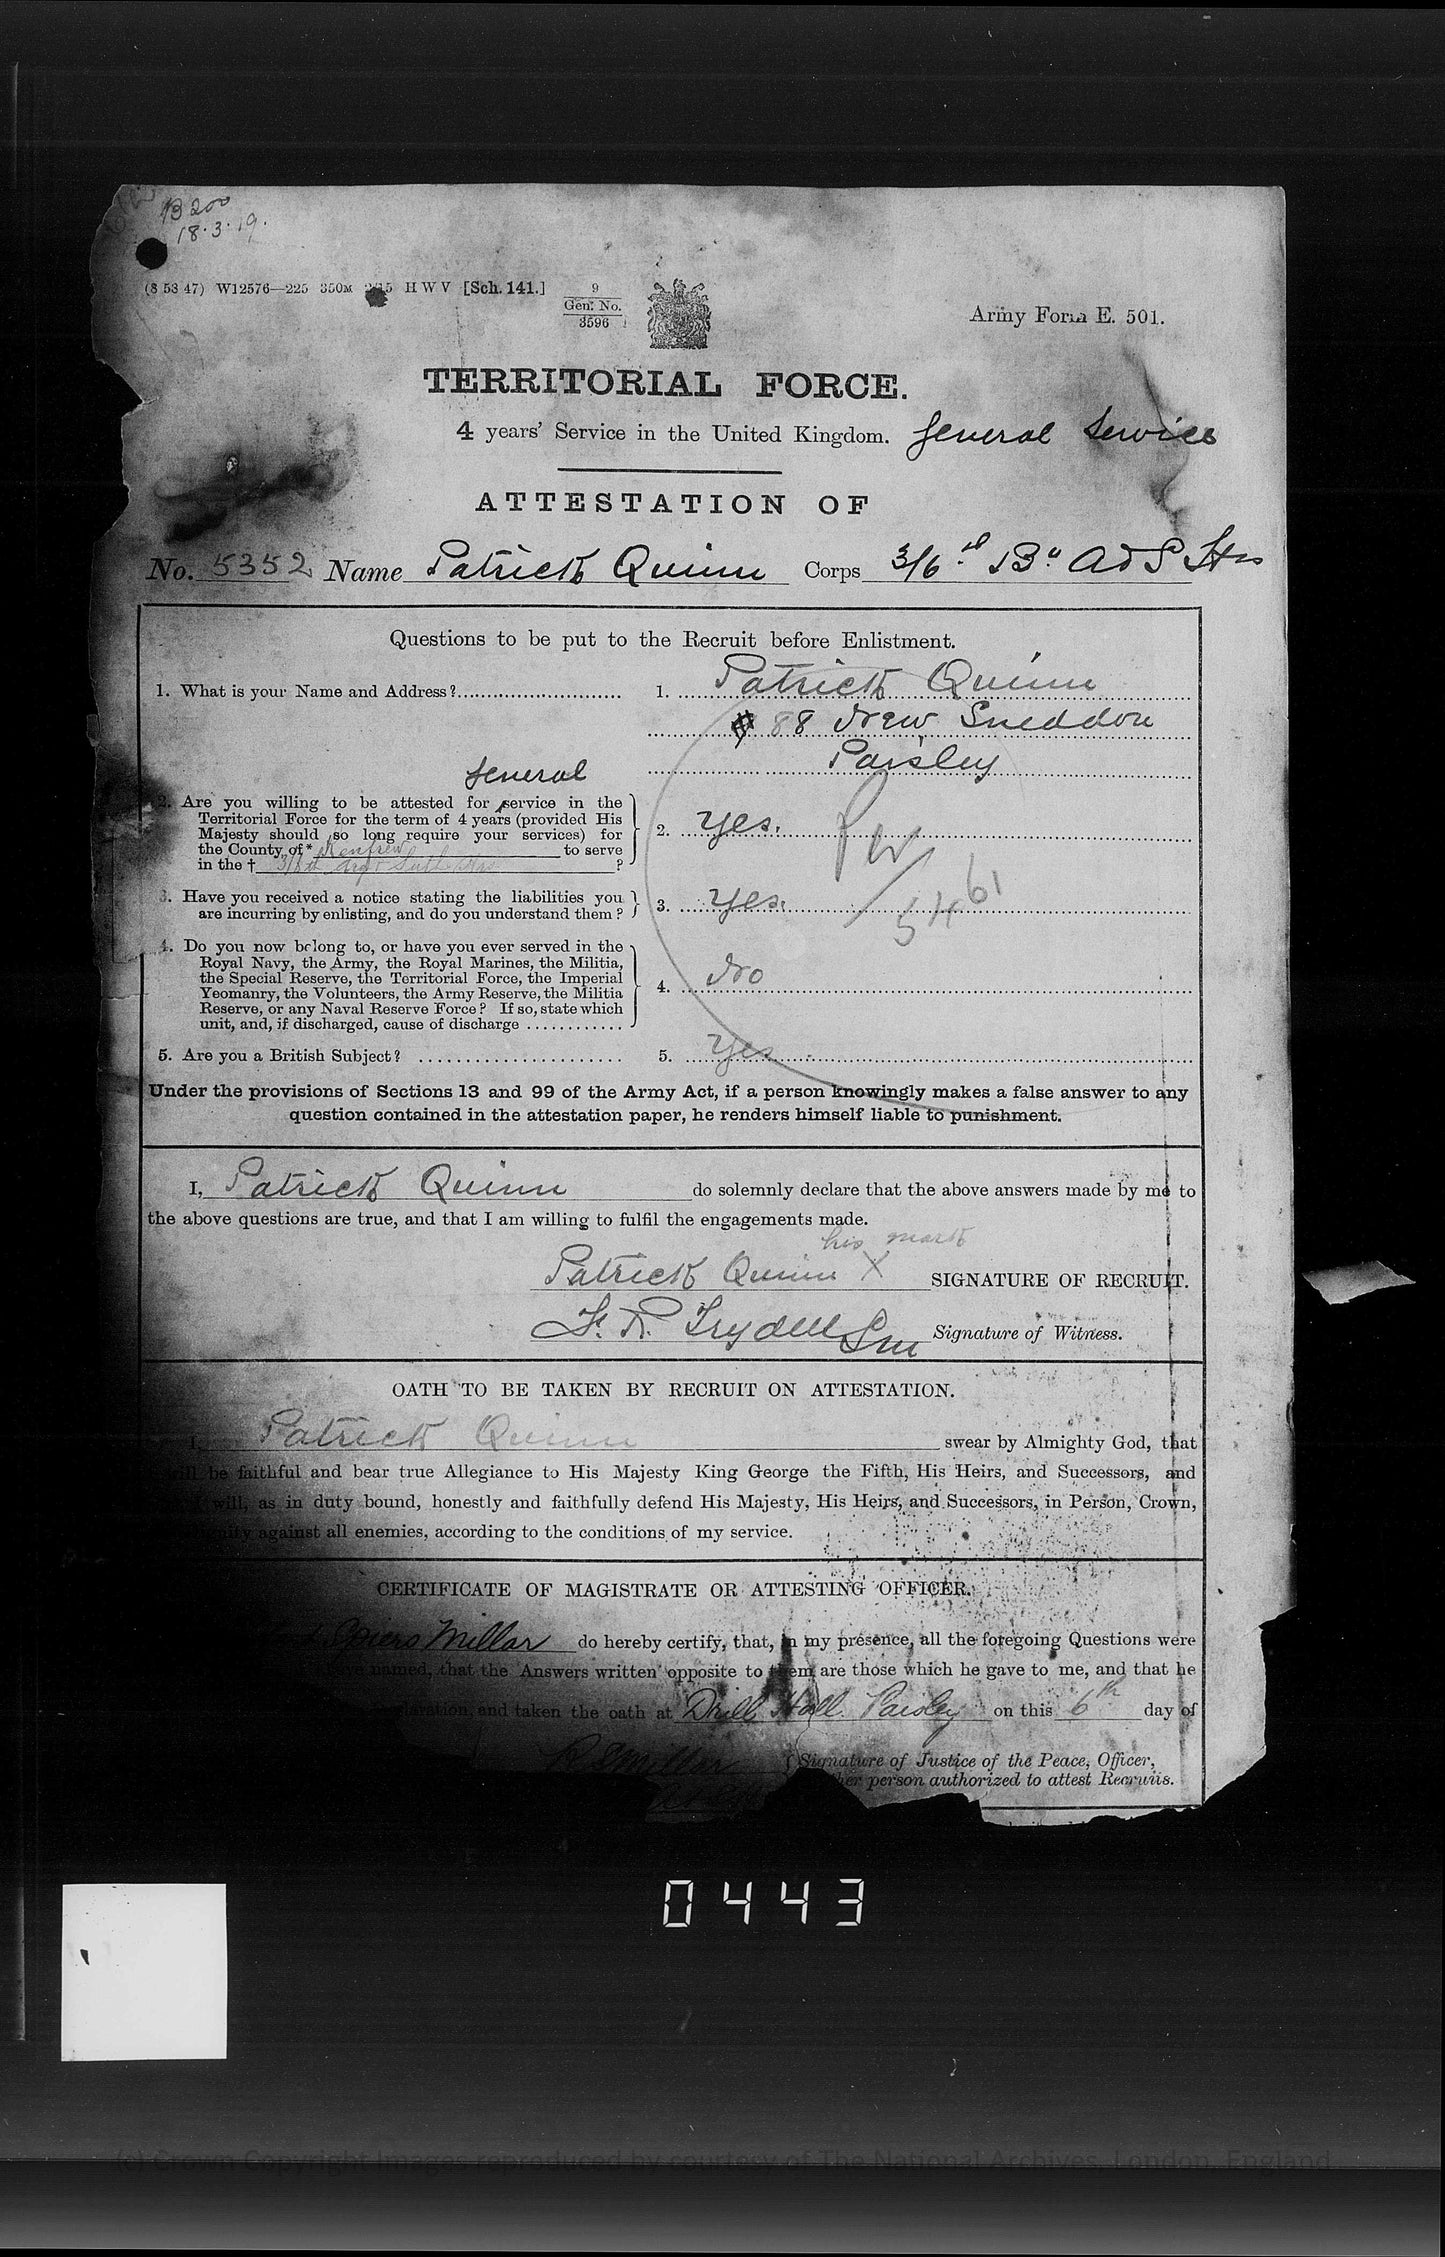 B200
18.3.19.
(8 53 47) W12576—225 350M 2/15 H W V [Sch. 141.]
9
Gen. No.
3596
Army Form E. 501.
TERRITORIAL FORCE.
4 years' Service in the United Kingdom. General Service
ATTESTATION OF
No. 5352 Name Patrick Quinn Corps 3/6th Bn A & S Hrs
Questions to be put to the Recruit before Enlistment.
1. What is your Name and Address?
1. Patrick Quinn
88 New Sneddon
Paisley
General
2. Are you willing to be attested for service in the
Territorial Force for the term of 4 years (provided His
Majesty should so long require your services) for
the County of* Renfrew to serve
in the † 3/6th Arg & Suth Hrs ?
2. Yes.
3. Have you received a notice stating the liabilities you
are incurring by enlisting, and do you understand them?
3. Yes.
PW
5461
4. Do you now belong to, or have you ever served in the
Royal Navy, the Army, the Royal Marines, the Militia,
the Special Reserve, the Territorial Force, the Imperial
Yeomanry, the Volunteers, the Army Reserve, the Militia
Reserve, or any Naval Reserve Force? If so, state which
unit, and, if discharged, cause of discharge
4. No
5. Are you a British Subject?
5. Yes
Under the provisions of Sections 13 and 99 of the Army Act, if a person knowingly makes a false answer to any
question contained in the attestation paper, he renders himself liable to punishment.
I, Patrick Quinn do solemnly declare that the above answers made by me to
the above questions are true, and that I am willing to fulfil the engagements made.
his mark
Patrick Quinn X SIGNATURE OF RECRUIT.
Signature of Witness.
OATH TO BE TAKEN BY RECRUIT ON ATTESTATION.
I, Patrick Quinn swear by Almighty God, that
will be faithful and bear true Allegiance to His Majesty King George the Fifth, His Heirs, and Successors, and
will, as in duty bound, honestly and faithfully defend His Majesty, His Heirs, and Successors, in Person, Crown,
dignity against all enemies, according to the conditions of my service.
CERTIFICATE OF MAGISTRATE OR ATTESTING OFFICER.
Spiers Millar do hereby certify, that, in my presence, all the foregoing Questions were
named, that the Answers written opposite to them are those which he gave to me, and that he
and taken the oath at Drill Hall Paisley on this 6th day of
R S Millar Signature of Justice of the Peace, Officer,
person authorized to attest Recruits.
0443
(c) Crown Copyright Images reproduced by courtesy of The National Archives, London, England